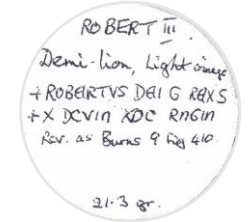 ROBERT III
Demi-lion, Light
+ROBERTVS DEI G REX S
+X DCVIN XDC RNGIN
Rev. as Burns 9 Fig 410.
21.3 gr.